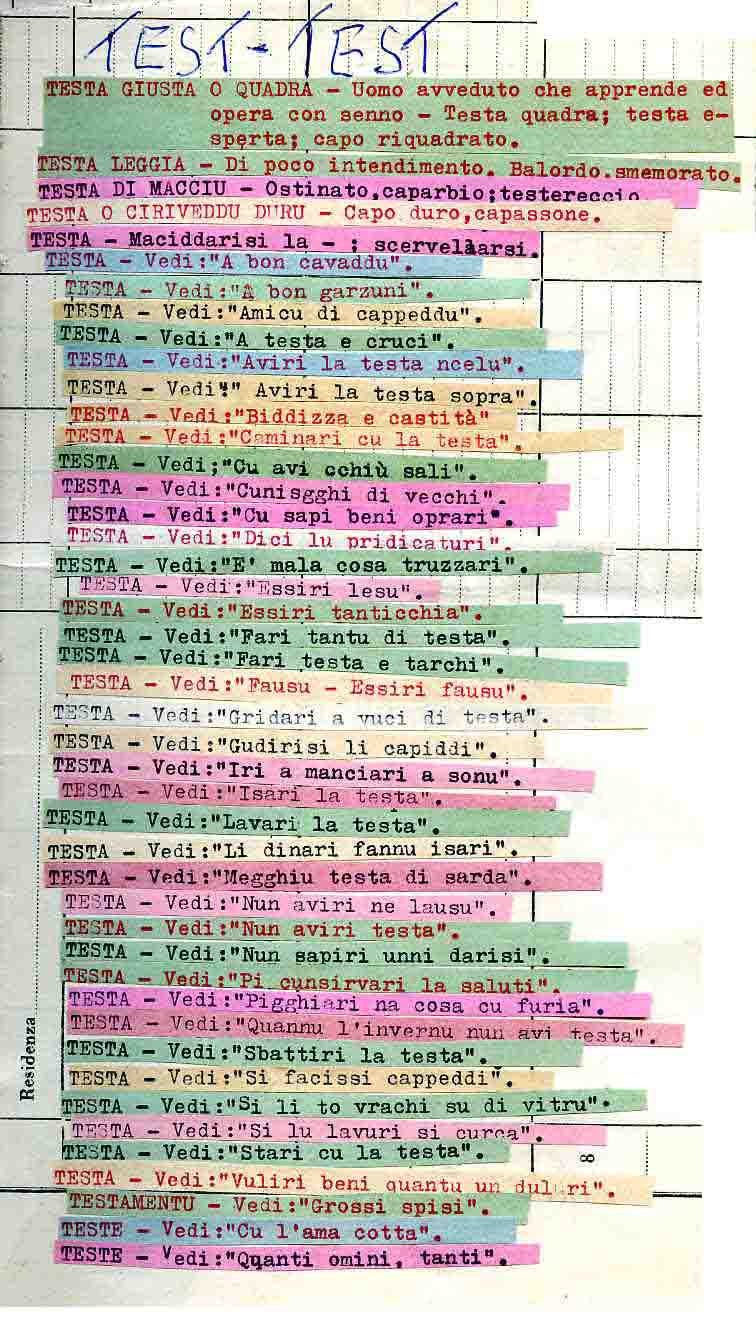 TEST-TEST
TESTA GIUSTA O QUADRA - Uomo avveduto che apprende ed
opera con senno - Testa quadra; testa e-
sperta; capo riquadrato.
TESTA LEGGIA - Di poco intendimento. Balordo.smemorato.
TESTA DI MACCIU - Ostinato,caparbio;testereccio
TESTA O CIRIVEDDU DURU - Capo duro,capassone.
TESTA - Maciddarisi la - ; scervellarsi.
TESTA - Vedi:"A bon cavaddu".
TESTA - Vedi:"A bon garzuni".
TESTA - Vedi:"Amicu di cappeddu".
TESTA - Vedi:"A testa e cruci".
TESTA - Vedi:"Aviri la testa ncelu".
TESTA - Vedi:" Aviri la testa sopra".
TESTA - Vedi:"Biddizza e castità"
TESTA - Vedi:"Caminari cu la testa".
TESTA - Vedi;"Cu avi cchiù sali".
TESTA - Vedi:"Cunisgghi di vecchi".
TESTA - Vedi:"Cu sapi beni oprari".
TESTA - Vedi:"Dici lu pridicaturi".
TESTA - Vedi:"E' mala cosa truzzari".
TESTA - Vedi:"Essiri lesu".
TESTA - Vedi:"Essiri tanticchia".
TESTA - Vedi:"Fari tantu di testa".
TESTA - Vedi:"Fari testa e tarchi".
TESTA - Vedi:"Fausu - Essiri fausu".
TESTA - Vedi:"Gridari a vuci di testa".
TESTA - Vedi:"Gudirisi li capiddi".
TESTA - Vedi:"Iri a manciari a sonu".
TESTA - Vedi:"Isari la testa".
TESTA - Vedi:"Lavari la testa".
TESTA - Vedi:"Li dinari fannu isari".
TESTA - Vedi:"Megghiu testa di sarda".
TESTA - Vedi:"Nun aviri ne lausu".
TESTA - Vedi:"Nun aviri testa".
TESTA - Vedi:"Nun sapiri unni darisi".
TESTA - Vedi:"Pi cunsirvari la saluti".
TESTA - Vedi:"Pigghiari na cosa cu furia".
TESTA - Vedi:"Quannu l'invernu nun avi testa".
TESTA - Vedi:"Sbattiri la testa".
TESTA - Vedi:"Si facissi cappeddi".
TESTA - Vedi:"Si li to vrachi su di vitru".
TESTA - Vedi:"Si lu lavuri si curca".
TESTA - Vedi:"Stari cu la testa".
TESTA - Vedi:"Vuliri beni quantu un duluri".
TESTAMENTU - Vedi:"Grossi spisi".
TESTE - Vedi:"Cu l'ama cotta".
TESTE - Vedi:"Quanti omini, tanti".
Residenza
8